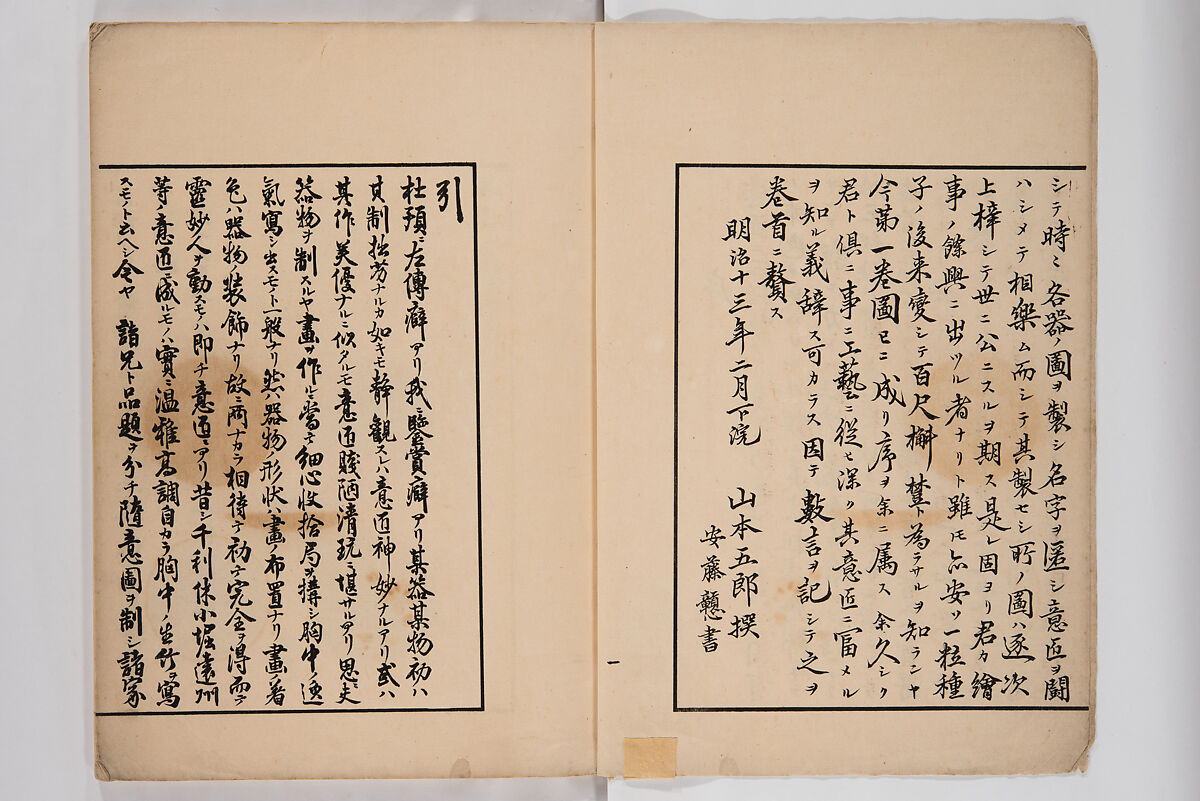 シテ時ニ各器ノ圖ヲ製シ名字ヲ匿シ意匠ヲ闘
ハシメテ相樂ム而シテ其製セシ所ノ圖ハ逐次
上梓シテ世ニ公ニスルヲ期ス是レ固ヨリ君カ繪
事ノ餘興ニ出ツル者ナリト雖モ亦安ソ一粒種
子ノ後来變シテ百尺檞
ト為ラサルヲ知ランヤ
今第一巻圖已ニ成リ序ヲ余ニ属ス余久シク
君ト倶ニ事ニ工藝ニ従ヒ深ク其意匠ニ富メル
ヲ知ル義辞ス可カラス因テ數言ヲ記シテ之ヲ
巻首ニ贅ス
明治十三年二月下浣 山本五郎撰
安藤戇書
一
引
杜預ニ左傳癖アリ我ニ鑒賞癖アリ某器某物初ハ
其制拙劣ナルカ如キモ静観スレハ意匠神妙ナルアリ或ハ
其作美優ナルニ似タルモ意匠賤陋清玩ニ堪サルアリ思フニ夫
器物ヲ制スルヤ畫ヲ作ルニ當テ細心收拾局ヲ構シ胸中ノ逸
氣寫シ出スモノト一般ナリ然ハ器物ノ形状ハ畫ノ布置ナリ畫ノ着
色ハ器物ノ装飾ナリ故ニ両ナカラ相待テ初テ完全ヲ得而テ
靈妙人ヲ動スモノハ即チ意匠ニアリ昔シ千利休小堀遠州
等ノ意匠ニ成ルモノハ實ニ温雅高調自カラ胸中ノ生竹ヲ寫
スモノト云ヘシ今ヤ 諸兄ト品題ヲ分チ随意圖ヲ制シ諸家